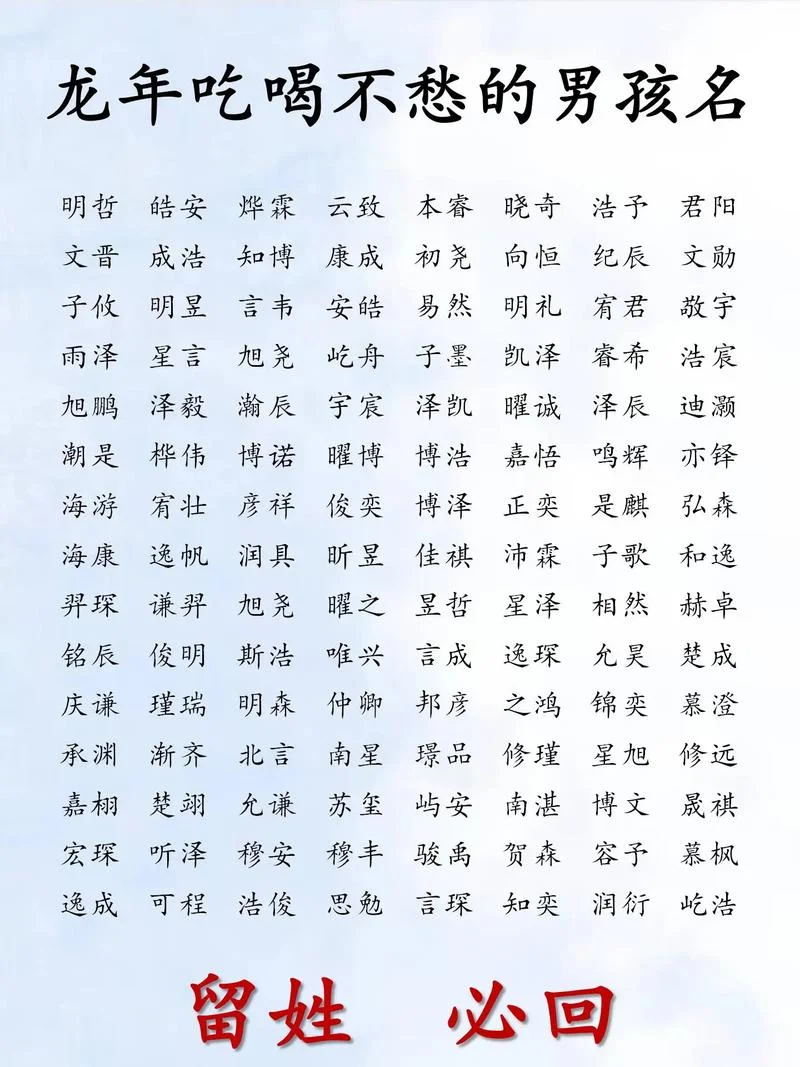 龙年吃喝不愁的男孩名
明哲 皓安 烨霖 云致 本睿 晓奇 浩予 君阳
文晋 成浩 知博 康成 初尧 向恒 纪辰 文勋
子攸 明昱 言韦 安皓 易然 明礼 宥君 敬宇
雨泽 星言 旭尧 屹舟 子墨 凯泽 睿希 浩宸
旭鹏 泽毅 瀚辰 宇宸 泽凯 曜诚 泽辰 迪灏
潮是 桦伟 博诺 曜博 博浩 嘉悟 鸣辉 亦铎
海游 宥壮 彦祥 俊奕 博泽 正奕 是麒 弘森
海康 逸帆 润具 昕昱 佳祺 沛霖 子歌 和逸
羿琛 谦羿 旭尧 曜之 昱哲 星泽 相然 赫卓
铭辰 俊明 斯浩 唯兴 言成 逸琛 允昊 楚成
庆谦 瑾瑞 明森 仲卿 邦彦 之鸿 锦奕 慕澄
承渊 渐齐 北言 南星 璟品 修瑾 星旭 修远
嘉栩 楚翊 允谦 苏玺 屿安 南湛 博文 晟祺
宏琛 听泽 穆安 穆丰 骏禹 贺森 容予 慕枫
逸成 可程 浩俊 思勉 言琛 知奕 润衍 屹浩
留姓 必回